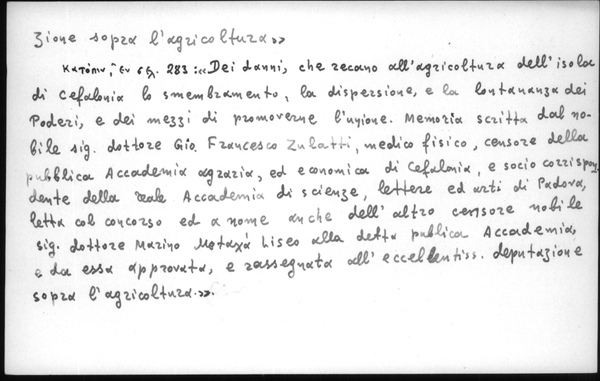 zione sopra l'agricoltura»
Κατόπιν, ἐν σελ. 283: «Dei danni, che recano all'agricoltura dell'isola
di Cefalonia lo smembramento, la dispersione, e la lontananza dei
Poderi, e dei mezzi di promoverne l'unione. Memoria scritta dal no-
bile sig. dottore Gio. Francesco Zulatti, medico fisico, censore della
pubblica Accademia agraria, ed economica di Cefalonia, e socio corrispon-
dente della reale Accademia di scienze, lettere ed arti di Padova,
letta col concorso ed a nome anche dell'altro censore nobile
sig. dottore Marino Metaxá Liseo alla detta publica Accademia,
e da essa approvata, e rassegnata all'eccellentiss. deputazione
sopra l'agricoltura.».